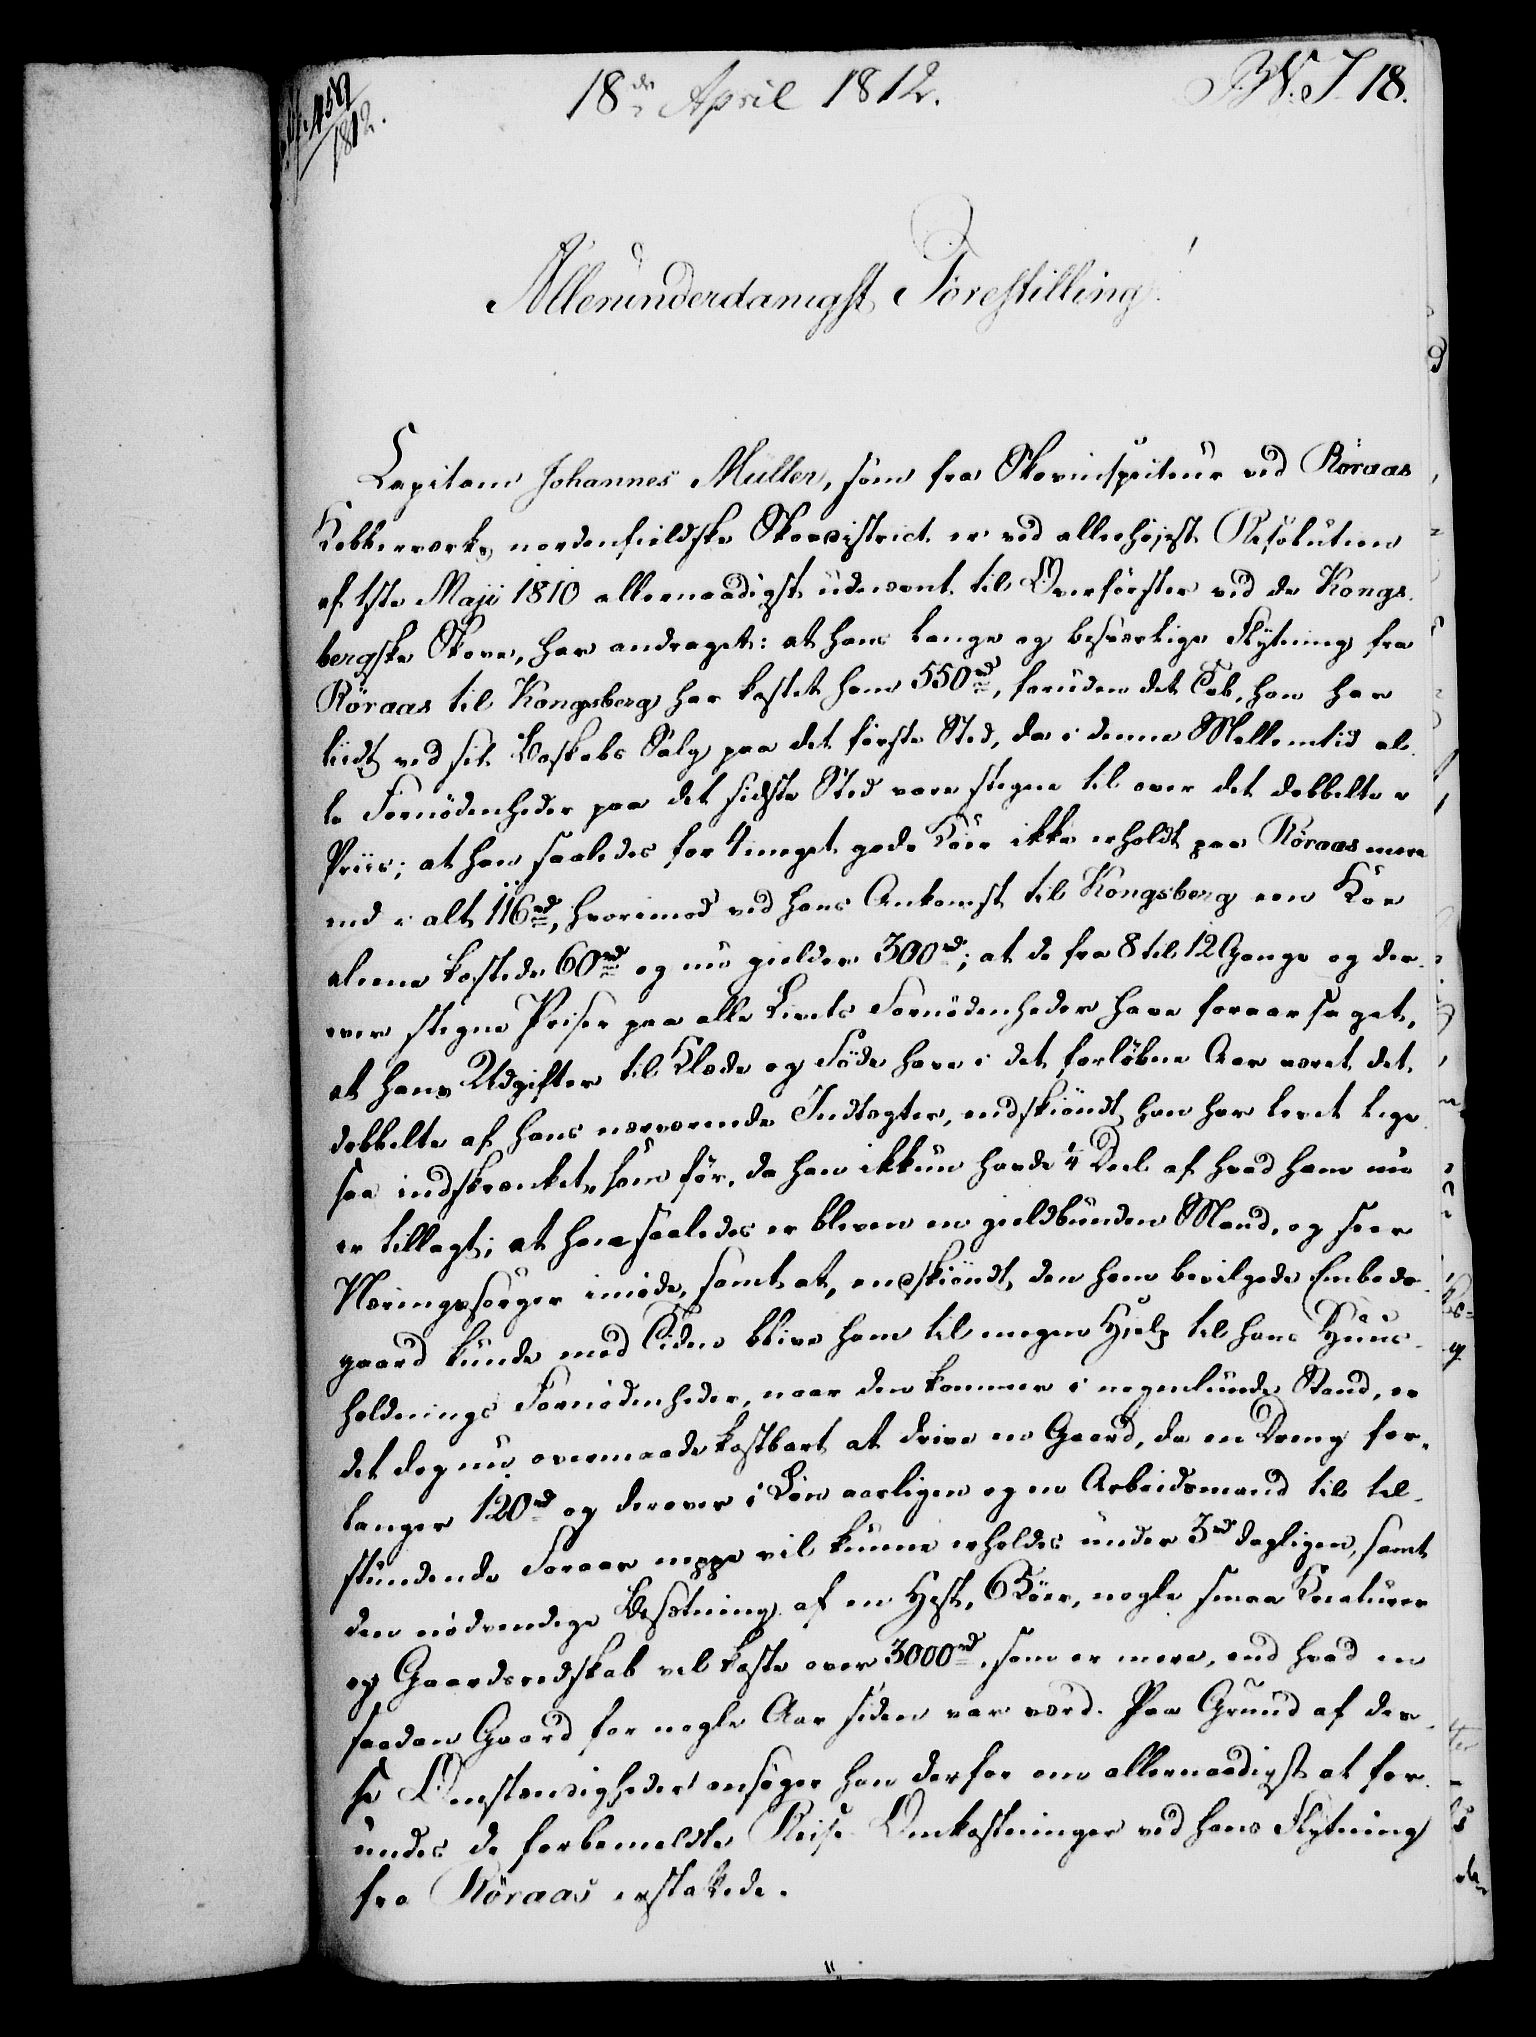 459
1812.
18de April 1812.
B. W. J 18.
Allerunderdanigst Forestilling!
Capitain Johannes Müller, som fra Skovinspecteur ved Röraas
Kobberværks nordenfieldske Skovdistrict er ved allerhöjest Resolution
af 1ste Maji 1810 allernaadigst udnævnt til Overförster ved de Kongs-
bergske Skove, har andraget: at hans lange og besværlige Flytning fra
Röraas til Kongsberg har kostet ham 550rd, foruden det Tab, han har
liidt ved sit Boskabs Salg paa det förste Sted, da i denne Mellemtid al-
le Fornödenheder paa det sidste Sted vare stegne til over det dobbelte
Priis; at han saaledes for 4 meget gode Köer ikke erholdt paa Röraas mere
end i alt 116rd, hvorimod ved hans Ankomst til Kongsberg een Koe
aleene kostede 60rd og nu gielder 300rd; at de fra 8 til 12 Gange og der-
over stegne Priser paa alle Livets Fornödenheder have foraarsaget,
at hans Udgifter til Klæde og Föde have i det forlöbne Aar været det
dobbelte af hans nærværende Indtægter, endskiöndt han har levet lige
saa indskrænket, som för, da han ikkun havde 1/4 Deel af hvad ham nu
er tillagt; at han saaledes er bleven en gieldbunden Mand, og seer
Næringssorger imöde, samt at, endskiöndt den ham bevilgede Embeds-
gaard kunde med Tiden blive ham til megen Hielp til hans Huus-
holdnings Fornödenheder, naar den kommer i nogenlunde Stand, er
det dog nu overmaade kostbart at drive en Gaard, da en Dreng for-
langer 120rd og derover i Lön aarligen og en Arbeidsmand til til-
stundende Foraar neppe vil kunne erholdes under 3rd dagligen, samt
den nödvendige Besætning af en Hest, 6 Köer, nogle smaa Kreaturer
og Gaardsredskab vil koste over 3000rd, som er mere, end hvad en
saadan Gaard for nogle Aar siden var værd. Paa Grund af dis-
se Omstændigheder ansöger han derfor om allernaadigst at for-
undes de forbemeldte Reise-Omkostninger ved hans Flytning
fra Röraas erstattede.